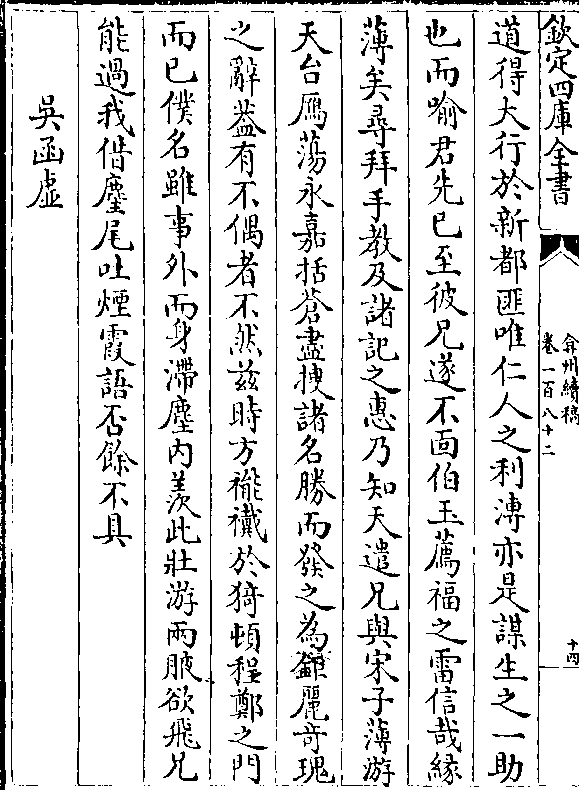 欽定四庫全書
弇州續稿
卷一百八十二
十四
道得大行於新都匪唯仁人之利溥亦是謀生之一助
也而喻君先已至彼兄遂不面伯玉薦福之雷信哉緣
薄矣尋拜手教及諸記之惠乃知天遣兄與宋子薄游
天台雁蕩永嘉括蒼盡搜諸名勝而發之為鉅麗奇瑰
之辭葢有不偶者不然兹時方褦襶於猗頓程鄭之門
而已僕名雖事外而身滯塵内羨此壯游兩腋欲飛兄
能過我借麈尾吐煙霞語否餘不具
吳函虛